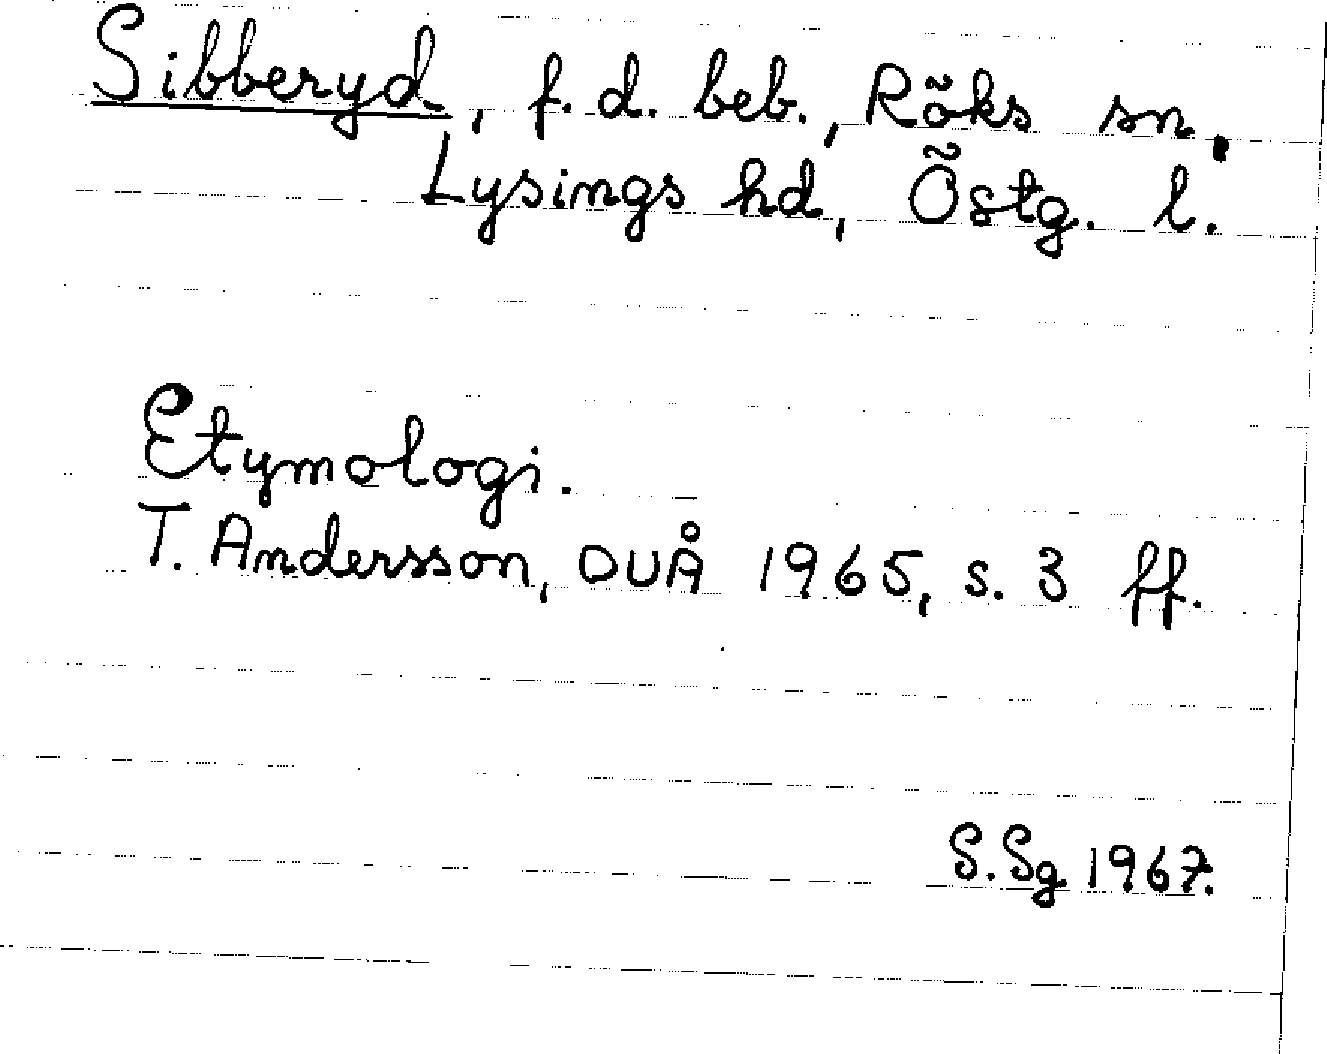 Sibberyd, f.d. beb., Röks sn,
Lysings hd, Östg. l.
Etymologi.
T. Andersson, OUÅ 1965, s. 3 ff.
S.Sg 1967.